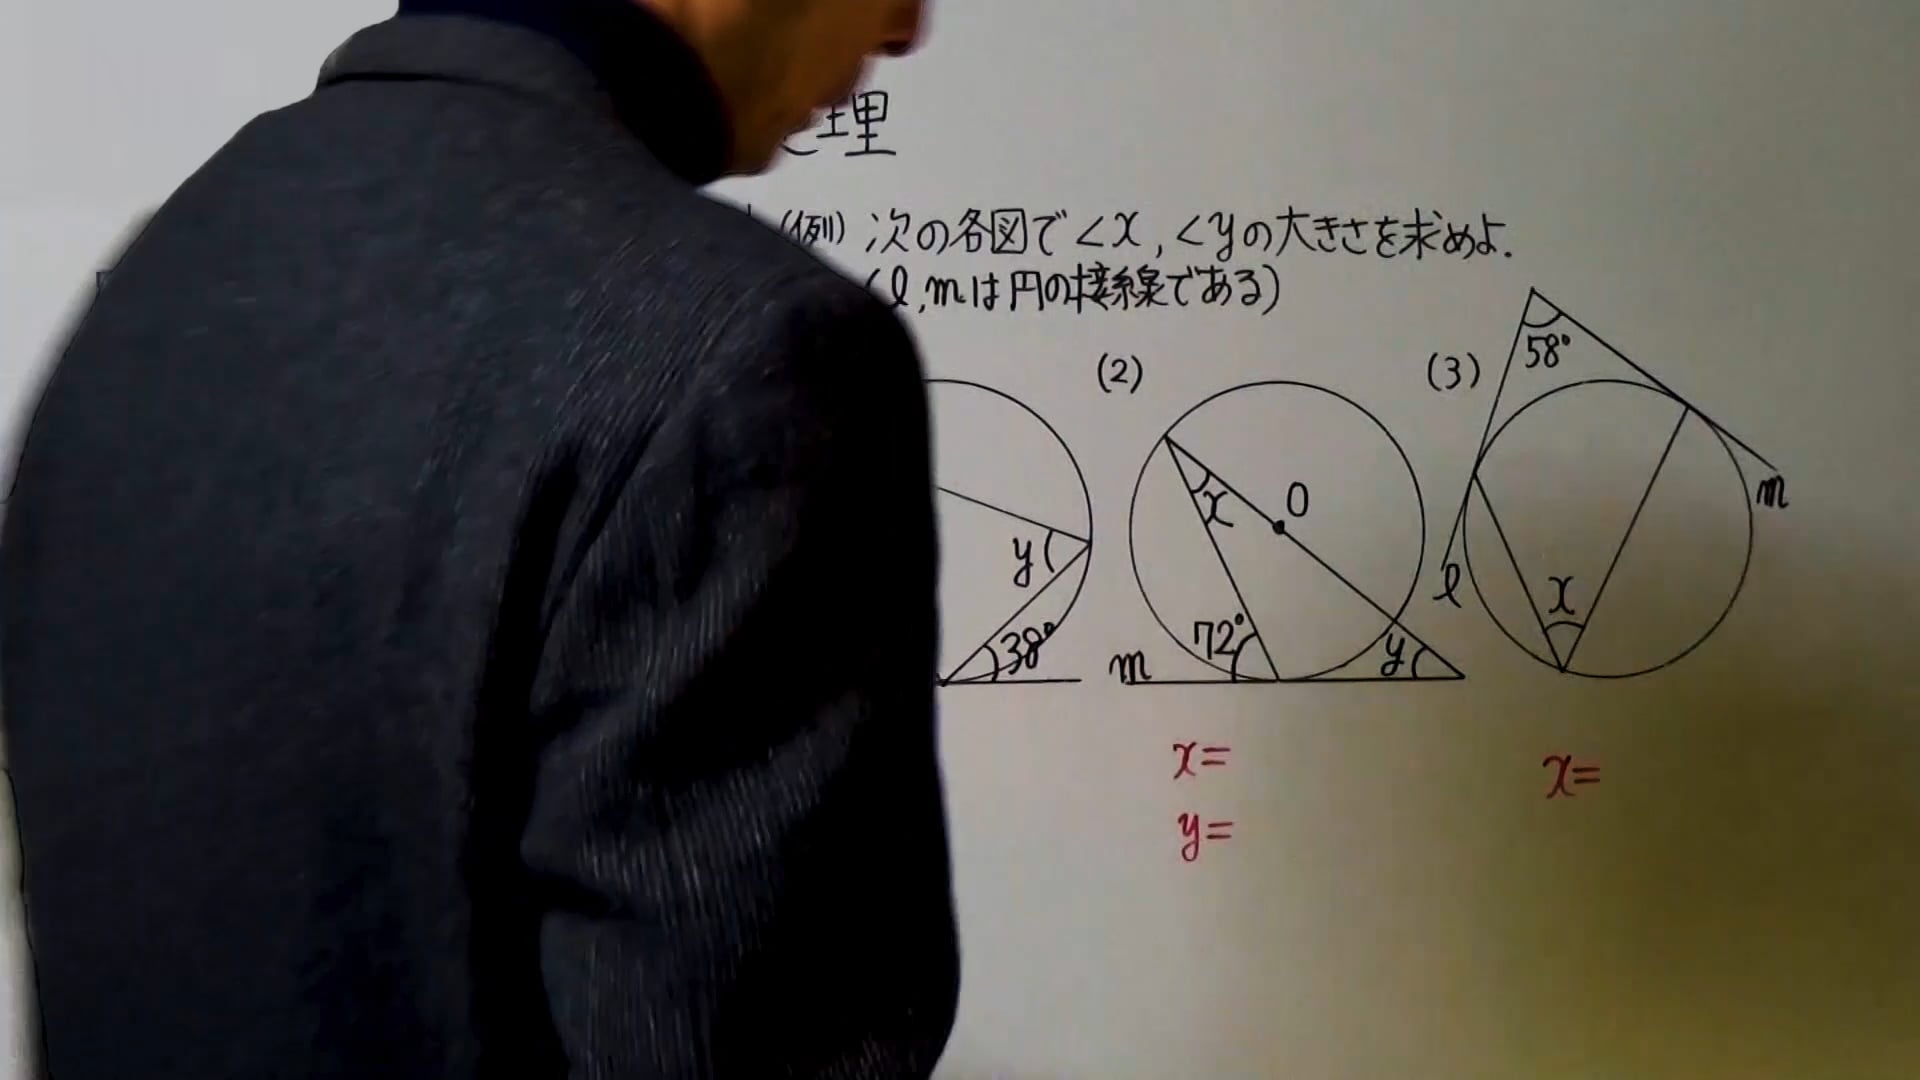 理
(例) 次の各図で∠x, ∠yの大きさを求めよ.
(l, mは円の接線である)
y
38°
(2)
x
O
72°
y
m
x=
y=
(3)
58°
m
l
x
x=